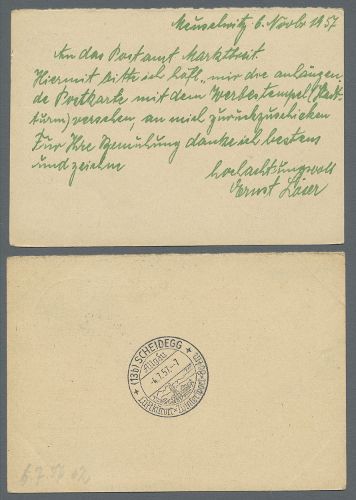 Meuselwitz 6. Novbr 1957
An das Postamt Marktbreit.
Hiermit bitte ich höfl., mir die anhängen-
de Postkarte mit dem Werbestempel
turm) versehen, an mich zurückzuschicken
Für Ihre Bemühung danke ich bestens
und zeichne
hochachtungsvoll
Ernst
(13b) SCHEIDEGG
Allgäu
-4.7.57.-7
Luftkurort-Wintersportplatz
6.7.57